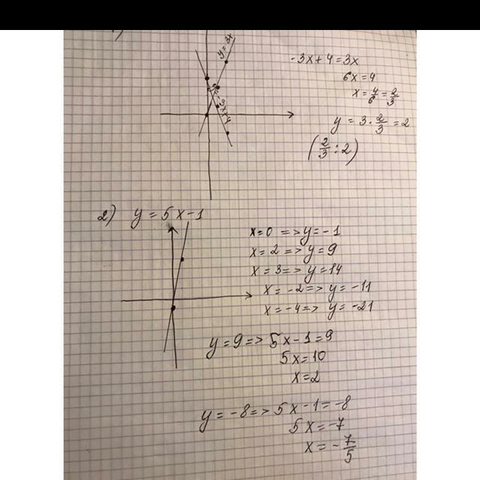 y=3x
y=-3x+4
-3x+4=3x
6x=4
x=4/6=2/3
y=3·2/3=2
(2/3:2)
2) y=5x-1
x=0 => y=-1
x=2 => y=9
x=3 => y=14
x=-2 => y=-11
x=-4 => y=-21
y=9 => 5x-1=9
5x=10
x=2
y=-8 => 5x-1=-8
5x=-7
x=-7/5